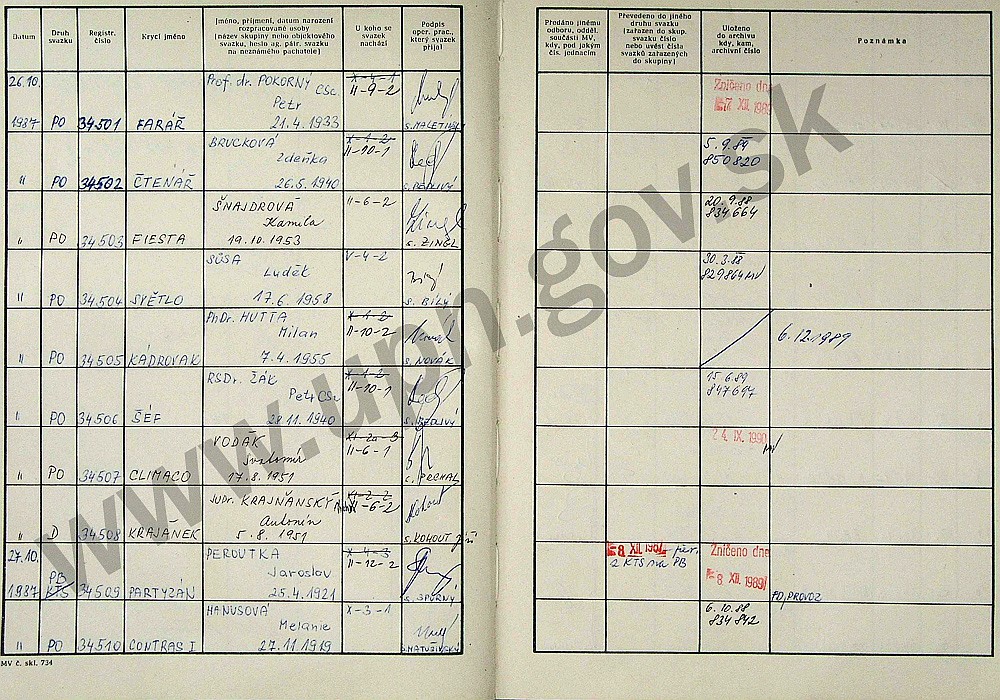 Datum
Druh
svazku
Registr.
číslo
Krycí jméno
Jméno, příjmení, datum narození
rozpracované osoby
(název skupiny nebo objektového
svazku, heslo ag. pátr. svazku
na neznámého pachatele)
U koho se
svazek
nachází
Podpis
oper. prac.,
který svazek
přijal
Předáno jinému
odboru, odděl.
součásti MV,
kdy, pod jakým
čís. jednacím
Převedeno do jiného
druhu svazku
(zařazen do skup.
svazku číslo
nebo uvést čísla
svazků zařazených
do skupiny)
Uloženo
do archivu
kdy, kam,
archivní číslo
Poznámka
26.10.
Prof. dr. POKORNÝ CSc.
X-4-1
II-9-2
Zničeno dne
Petr
XII. 1989
1987 PO 34501 FARÁŘ 21.4.1933
BRUCKOVÁ
X-1-2
II-10-1
5.9.89
850820
Zdeňka
" PO 34502 ČTENÁŘ 26.5.1940
ŠNAJDROVÁ II-6-2
20.9.88
834664
Kamila
" PO 34503 FIESTA 19.10.1953 s. ZINGL
SŮSA V-4-2
30.3.88
829864 MV
Luděk
" PO 34504 SVĚTLO 17.6.1958 s. BÍLÝ
PhDr. HUTTA
X-1-2
II-10-2
Milan
6.12.1989
" PO 34505 KÁDROVAK 7.4.1955 s. NOVÁK
RSDr. ŽÁK
X-1-2
II-10-1
15.6.89
847697
Petr CSc
" PO 34506 ŠÉF 28.11.1940
VODÁK
II-6-1
24. IX. 1990
Svatomír
" PO 34507 CLIMACO 17.8.1951 s. PECHAL
JUDr. KRAJŇANSKÝ
XI-2-2
II-6-2
Antonín
" D 34508 KRAJÁNEK 5.8.1951 s. KOHOUT
27.10.
PEROUTKA
X-4-3
II-12-2
Zničeno dne
PB
Jaroslav
z KTS na PB
8 XII. 1989
1987 KTS 34509 PARTYZÁN 25.4.1921 s. SPURNÝ
PO, PROVOZ
HANUSOVÁ X-3-1
6.10.88
834842
Melanie
" PO 34510 CONTRAS I 27.11.1919
MV č. skl. 734
www.upn.gov.sk